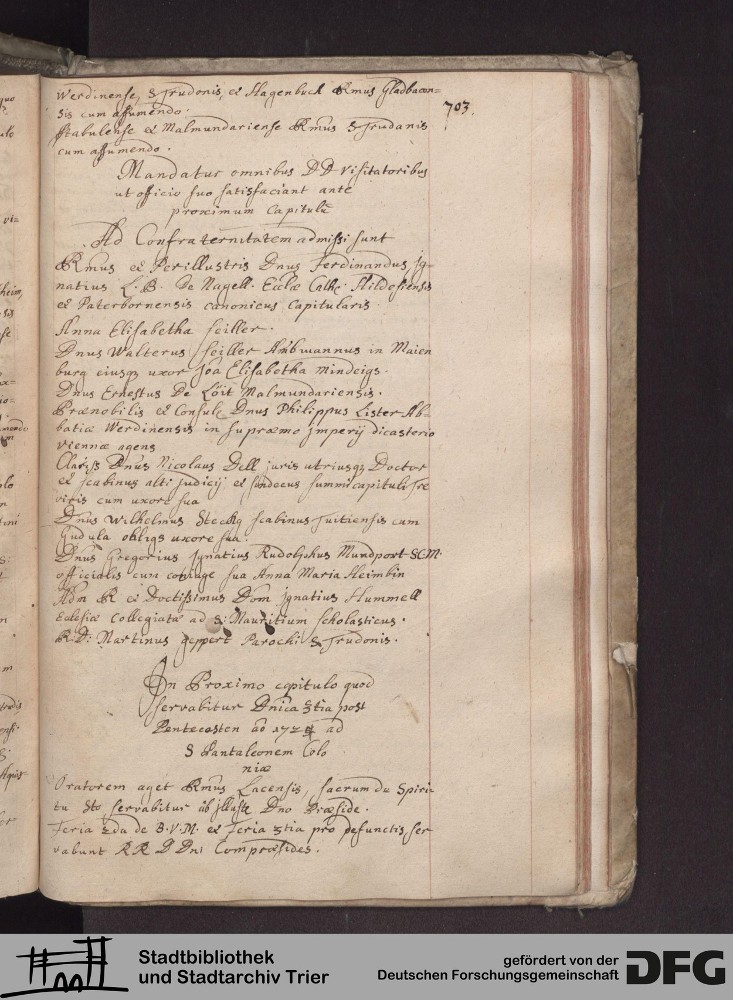 Werdinense, S Trudonis, et Hagenbuch Rmus Gladbacen=
sis cum assumendo.
703.
Stabulense et Malmundariense Rmus S Trudonis
cum assumendo.
Mandatur omnibus DD Visitatoribus
ut officio suo satisfaciant ante
proximum Capitulũ
Ad Confraternitatem admissi sunt
Rmus et Perillustris Dnus Ferdinandus Ig=
natius L. B. De Nagell. Ecclæ Cathe Hildesiensis
et Paterbornensis canonicus Capitularis.
Anna Elisabetha seiller.
Dnus Walterus seiller Ambmannus in Maien
burg eiusq uxor Joã Elisabetha Mindeigs.
Dnus Ernestus De Löit Malmundariensis.
Prænobilis et Consule Dnus Philippus Lister Ab=
batiæ Werdinensis in supræmo Imperÿ dicasterio
Viennæ agens
Clariss Dnus Nicolaus Dell juris utriusq Doctor
et scabinus alti Judicÿ et summi capituli tre
viris cum uxore sua
Dnus Wilhelmus scabinus Tuitiensis cum
Gudula uxore sua.
Dnus Gregorius Ignatius Rudolphus Mundport
officialis cum sua Anna Maria Heimbin
Adm R et Doctissimus Dom Ignatius Hummell
Eclesiæ Collegiatæ ad S: Mauritium scholasticus.
R: D: Martinus geppert Parochi S Trudonis.
In Proximo capitulo quod
servabitur Dnica 3tia post
Pentecosten aõ ad
S Pantaleonem Colo
niæ
Oratorem aget Rmus Lacensis, sacrum de Spiri
tu Sto servabitur ab Dno Præside.
Feria 2da de B. V. M. et Feria 3tia pro defunctis ser
vabunt RR D Dni Compræsides.
Stadtbibliothek
und Stadtarchiv Trier
gefördert von der
Deutschen Forschungsgemeinschaft
DFG